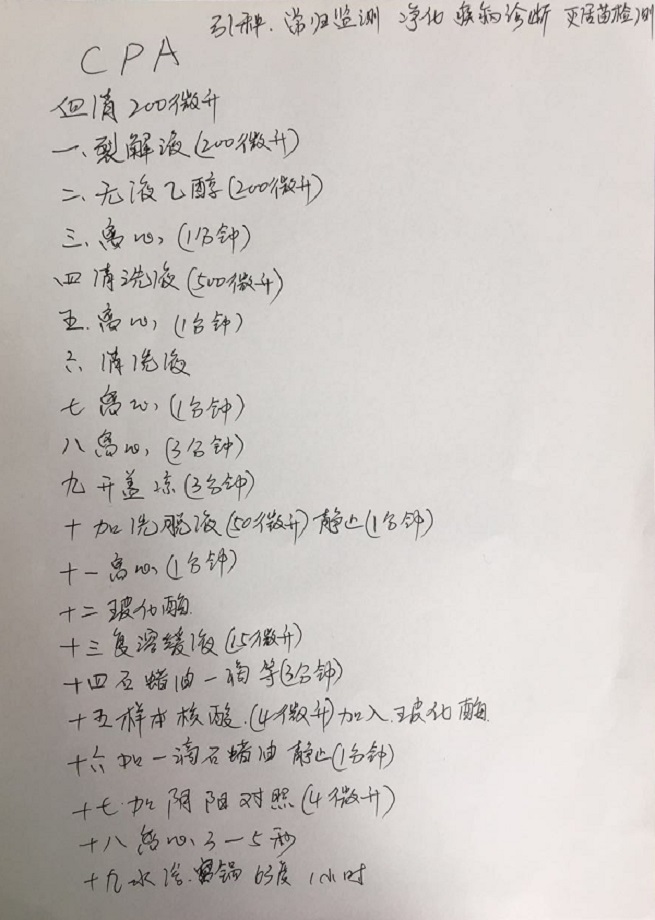 引种. 常归监测 净化 疾病诊断 灭活苗检测
CPA
血清200微升
一、裂解液(200微升)
二、无液乙醇(200微升)
三、离心,(1分钟)
四 清洗液(500微升)
五.离心,(1分钟)
六、清洗液
七 离心,(1分钟)
八 离心,(3分钟)
九 开盖凉(3分钟)
十 加洗脱液(50微升)静止(1分钟)
十一离心,(1分钟)
十二玻化酶.
十三复溶缓液(15微升)
十四石蜡油一滴等(3分钟)
十五样本核酸.(4微升)加入.玻化酶.
十六加一滴石蜡油静止(1分钟)
十七.加阴阳对照(4微升)
十八离心,3-5秒
十九水浴.锅63度1小时